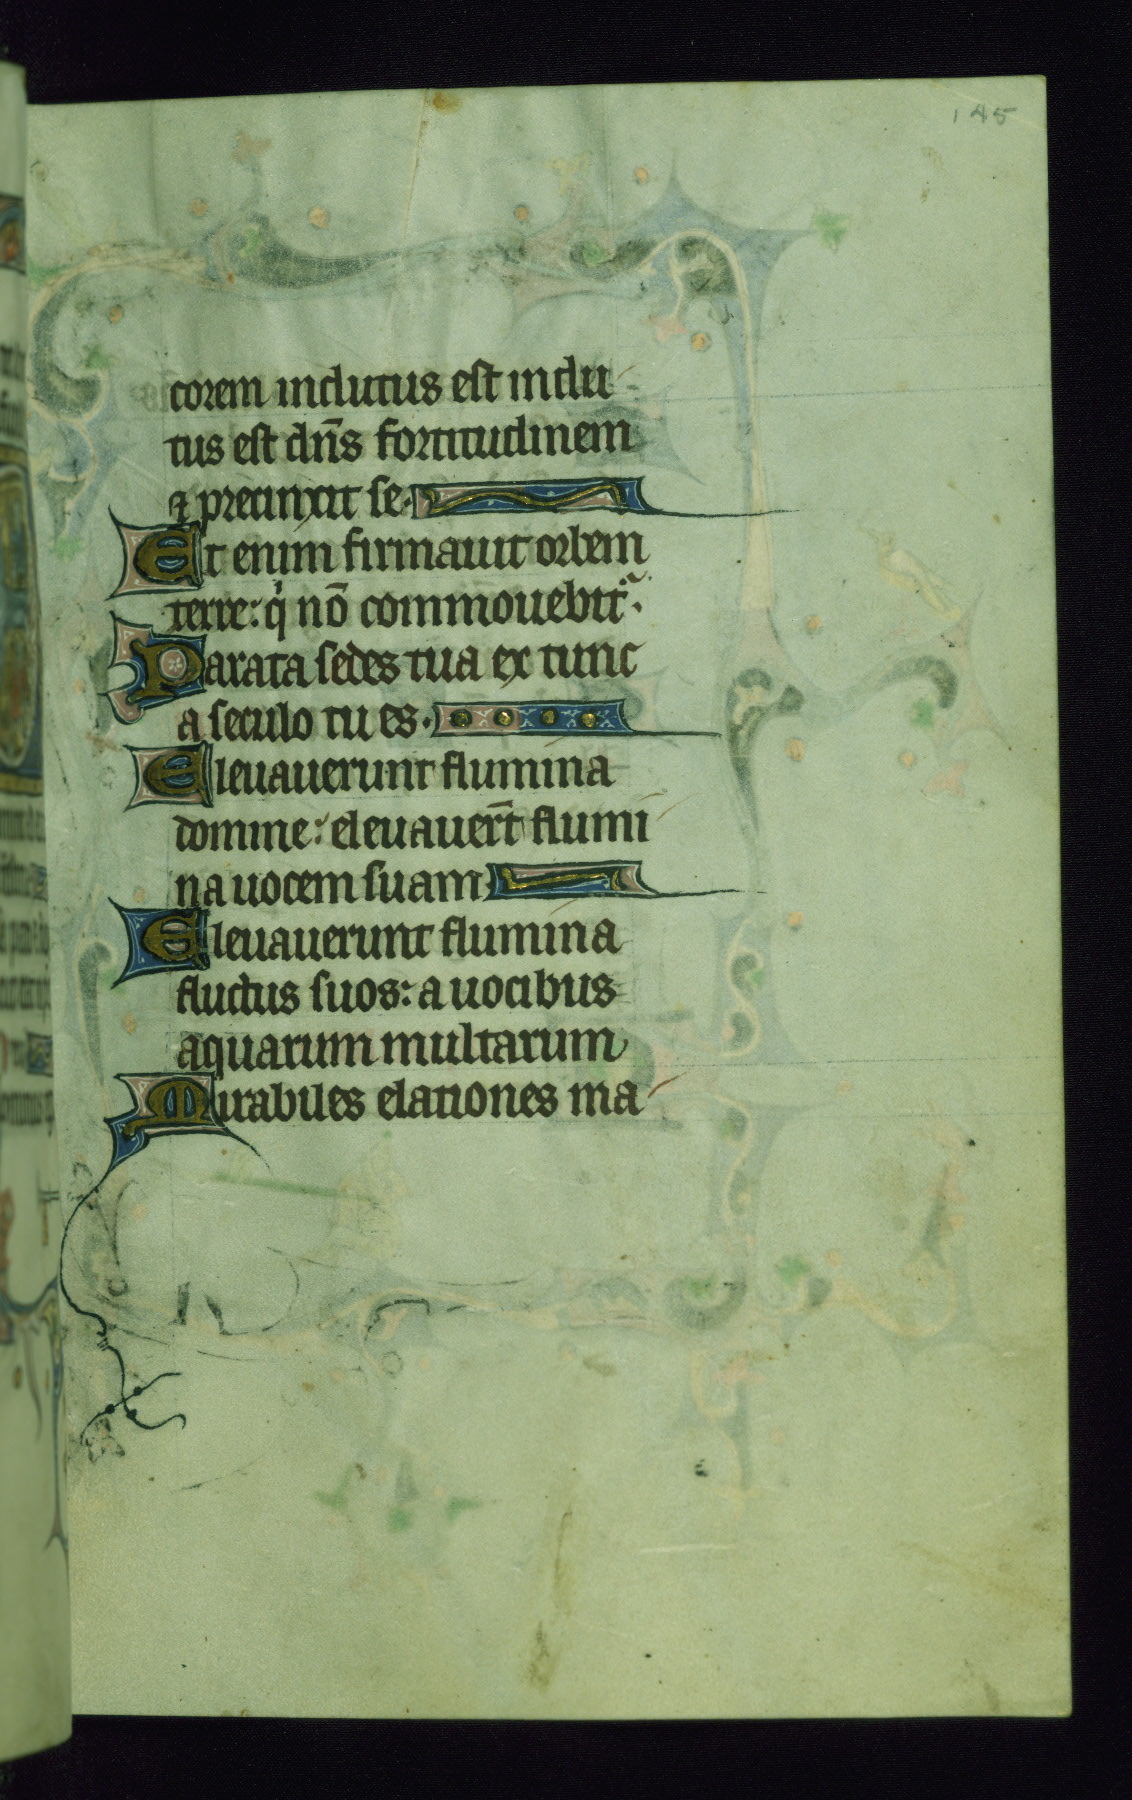 145
corem indutus est indu
tus est dñs fortitudinem
⁊ precinxit se.
Et enim firmauit orbem
terre: qͥ nō commouebit᷑.
Parata sedes tua ex tunc
a seculo tu es.
Eleuauerunt flumina
domine: eleuauer̄t flumi
na uocem suam
Eleuauerunt flumina
fluctus suos: a uocibus
aquarum multarum
Mirabiles elationes ma